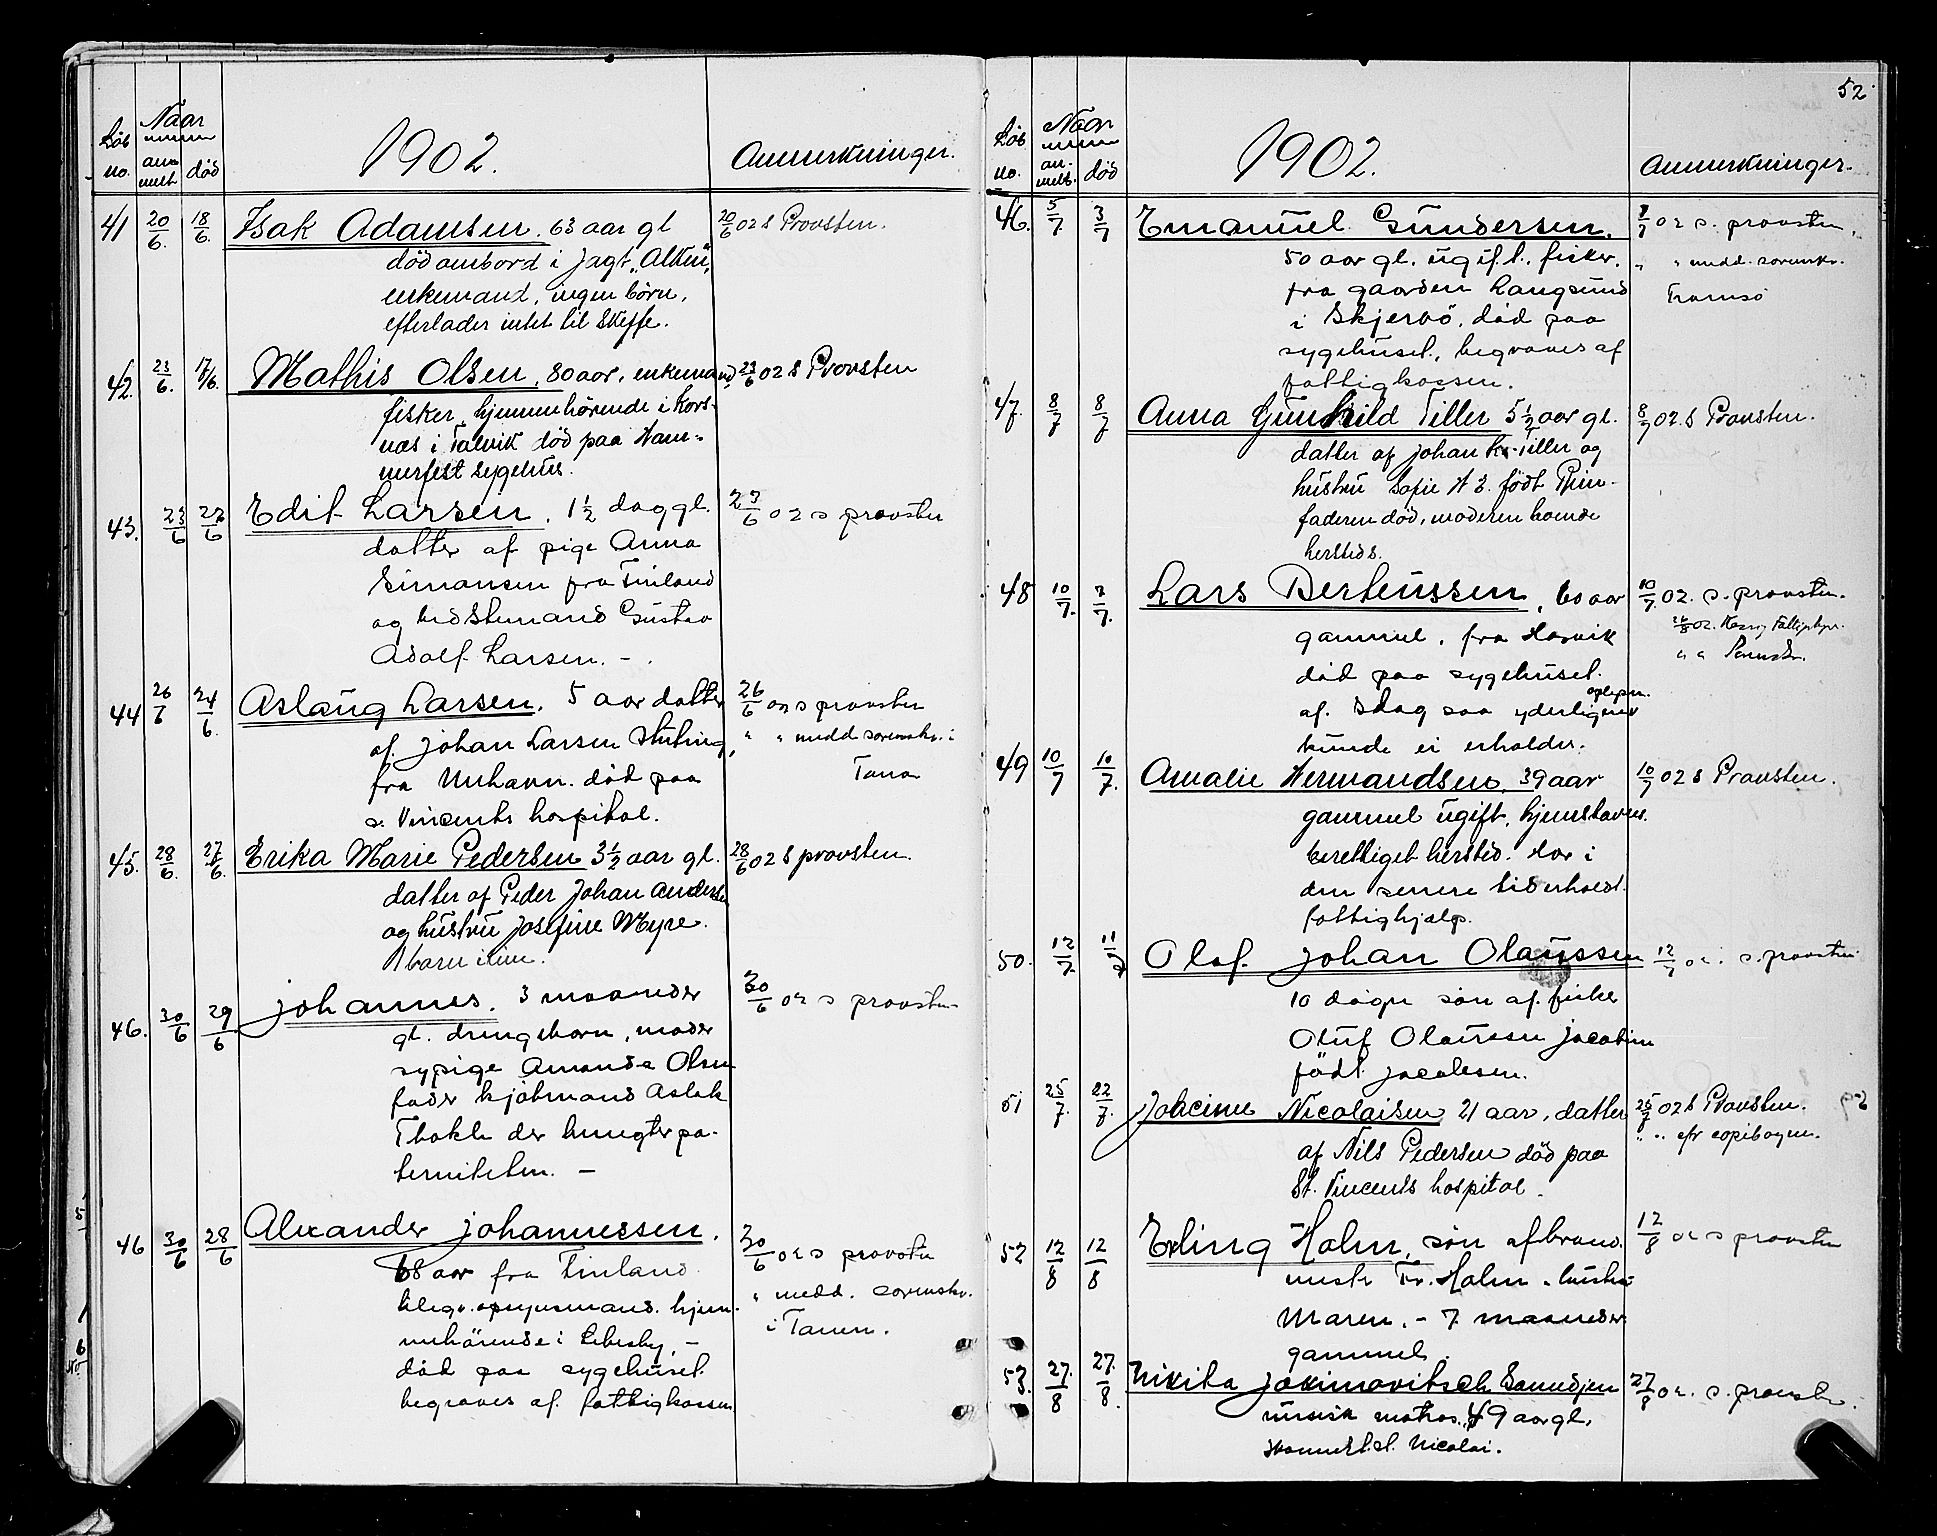 Løb no. Naar anmelt død 1902. Anmerkninger.
41 20/6. 18/6. Isak Adamsen. 63 aar gl 20/6 02 s Provsten.
død ombord i jagt „Alken",
enkemand, ingen børn,
efterlader intet til Skifte.
42. 23/6. 17/6. Mathis Olsen, 80 aar, enkemand, 23/6 02 s Provsten
fisker, hjemmehørende i Kors-
næs i Talvik død paa Ham-
merfest sygehus.
43. 23/6 22/6 Edit Larsen. 1 1/2 dag gl. 23/6 02 s provsten
datter af pige Anna
Simonsen fra Finland
og
Gustav
Adolf Larsen. – .
44 26/6 24/6. Aslaug Larsen. 5 aar datter 26/6 02 s provsten
af Johan Larsen " " medd sorenskr. i
fra død paa Tana
s. Vincents hospital.
45. 28/6. 27/6. Erika Marie Pedersen 3 1/2 aar gl. 28/6 02 s provsten.
datter af Peder Johan Andersen
og hustru Josefine Myre.
1 barn
46. 30/6 29/6 Johannes. 3 maaneder 30/6 02 s provsten
gl. drengebarn, moder
sypige Amanda Olsen
fader kjøbmand Aslak
der
terniteten. –
46 30/6 28/6 Alexander Johannessen. 30/6 02 s provsten
68 aar fra Finland " medd. sorenskr.
hjem- i Tanen.
mehørende i Lebesby, –
død paa sygehuset.
begraves af fattigkassen
52
Løb no. Naar an-meldt. død 1902. Anmerkninger.
46. 5/7 3/7 Emanuel Gundersen. 8/7 02 s. provsten,
50 aar gl. ugift, fisker, " " medd. sorenskr.
fra gaarden Langsund Tromsø
i Skjervø, død paa
sygehuset, begraves af
fattigkassen.
47. 8/7 8/7 Anna Gunhild Tiller 5 1/2 aar gl. 8/7 02. s Provsten.
datter af Johan Kr. Tiller og
hustru Sofie H E. født
faderen død, moderen boende
hersteds.
48 10/7. 7/7. Lars Berteussen, 60 aar 10/7. 02. s. provsten.
gammel, fra Hasvik
død paa sygehuset.
af Slag saa yderligere oplysn.
kunde ei erholdes.
49 10/7 10/7. Amalie Hermandsen, 39 aar 10/7 02 s Provsten.
gammel ugift, hjemstavns-
berettiget herstid. Har i
den senere tid erholdt
fattighjælp.
50. 12/7. 11/7 Olaf Johan Olaussen 12/7 02. s. provsten
10 døgn søn af fisker
Oluf Olaussen
født Jacobsen.
51 25/7. 22/7. Jakine Nicolaisen 21 aar, datter 25/7 02 s Provsten.
af Nils Pedersen død paa " " cfr copibogen.
St. Vincents hospital.
52 12/8 12/8 Erling Holm, søn af brand- 12/8 02 s provsten
mestr Fr. Holm hustru
Maren. – 7 maaneder
gammel.
53. 27./8 27./8. Nikita Jakimovitsch 27/8 02. s. provsten.
russisk matros, 49 aar gl.
Nicolai.